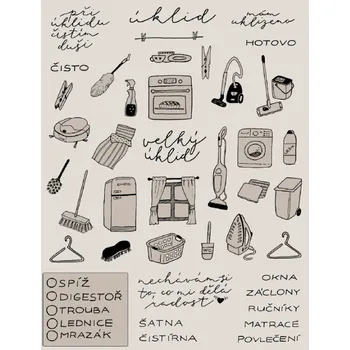 při
úklidu
čistím
duši
úklid
mám
uklizeno
HOTOVO
ČISTO
velký
úklid
SPÍŽ
DIGESTOŘ
TROUBA
LEDNICE
MRAZÁK
nechávám si
to, co mi dělá
radost
ŠATNA
ČISTÍRNA
OKNA
ZÁCLONY
RUČNÍKY
MATRACE
POVLEČENÍ